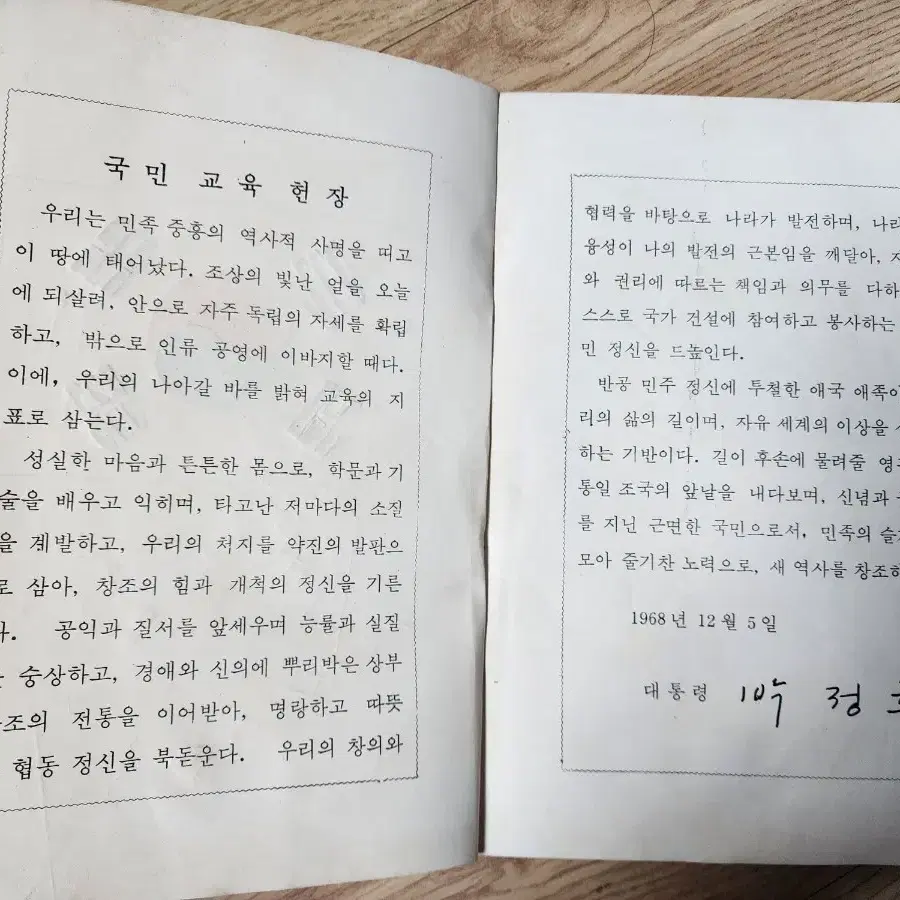 국민 교육 헌장
우리는 민족 중흥의 역사적 사명을 띠고
이 땅에 태어났다. 조상의 빛난 얼을 오늘
에 되살려, 안으로 자주 독립의 자세를 확립
하고, 밖으로 인류 공영에 이바지할 때다.
이에, 우리의 나아갈 바를 밝혀 교육의 지
표로 삼는다.
성실한 마음과 튼튼한 몸으로, 학문과 기
술을 배우고 익히며, 타고난 저마다의 소질
을 계발하고, 우리의 처지를 약진의 발판으
로 삼아, 창조의 힘과 개척의 정신을 기른
다. 공익과 질서를 앞세우며 능률과 실질
숭상하고, 경애와 신의에 뿌리박은 상부
상조의 전통을 이어받아, 명랑하고 따뜻
협동 정신을 북돋운다. 우리의 창의와
협력을 바탕으로 나라가 발전하며, 나라
융성이 나의 발전의 근본임을 깨달아,
와 권리에 따르는 책임과 의무를 다하
스스로 국가 건설에 참여하고 봉사하는
민 정신을 드높인다.
반공 민주 정신에 투철한 애국 애족이
리의 삶의 길이며, 자유 세계의 이상을
하는 기반이다. 길이 후손에 물려줄
통일 조국의 앞날을 내다보며, 신념과
를 지닌 근면한 국민으로서, 민족의
모아 줄기찬 노력으로, 새 역사를 창조하
1968년 12월 5일
대통령 박 정